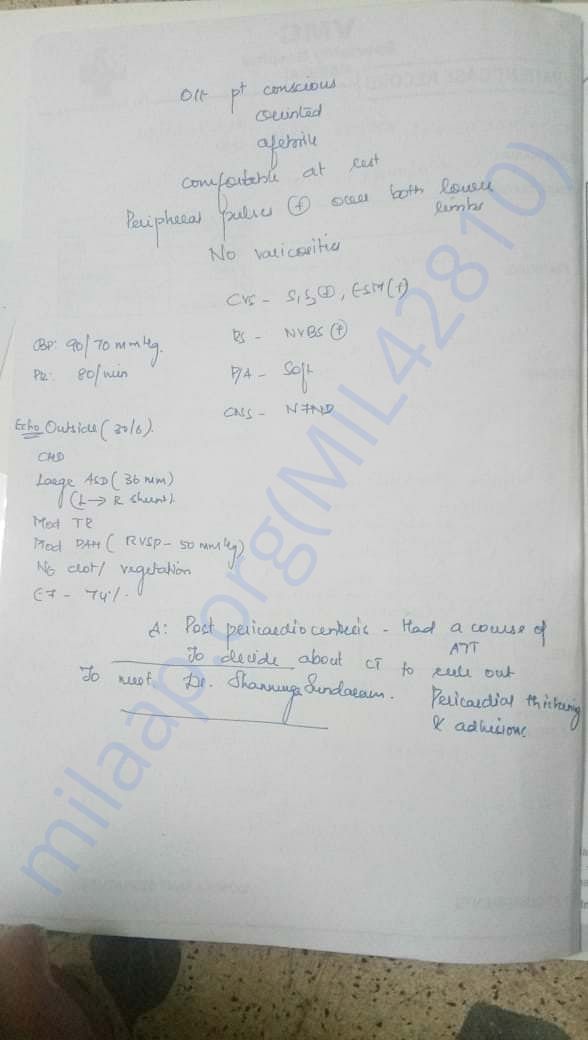 O/E pt conscious
oriented
afebrile
comfortable at rest
Peripheral pulses (+) over both lower
limbs
No varicosities
CVS - S1S2(+), ESM(+)
BP: 90/70 mmHg.
RS - NVBS (+)
PR: 80/min
P/A - Soft
CNS - NFND
Echo Outside (30/6).
CHD
Large ASD (36 mm)
(L → R shunt)
Mod TR
Mod PAH (RVSP - 50 mmHg)
No clot/ vegetation
EF - 74%.
A: Post pericardiocentesis - Had a course of
ATT
To decide about CT to rule out
Pericardial thickening
& adhesions
To meet Dr. Shanmuga Sundaram.
milaap.org(MIL42810)